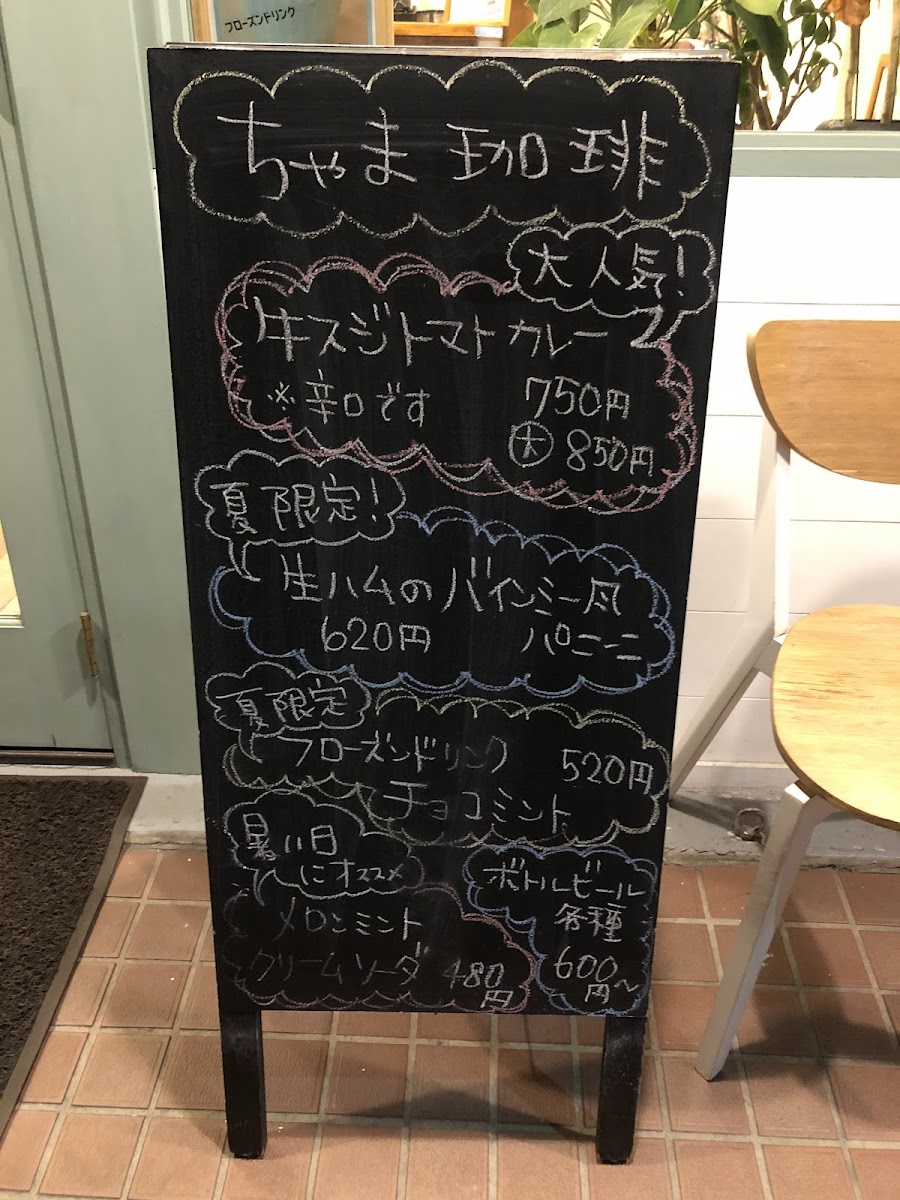 フローズンドリンク
ちゃま珈琲
大人気!
牛スジトマトカレー
※辛口です 750円
大 850円
夏限定!
生ハムのバインミー風
620円 パニーニ
夏限定
フローズンドリンク 520円
チョコミント
暑い日
にオススメ
メロンミント
クリームソーダ 480円
ボトルビール
各種
600円~